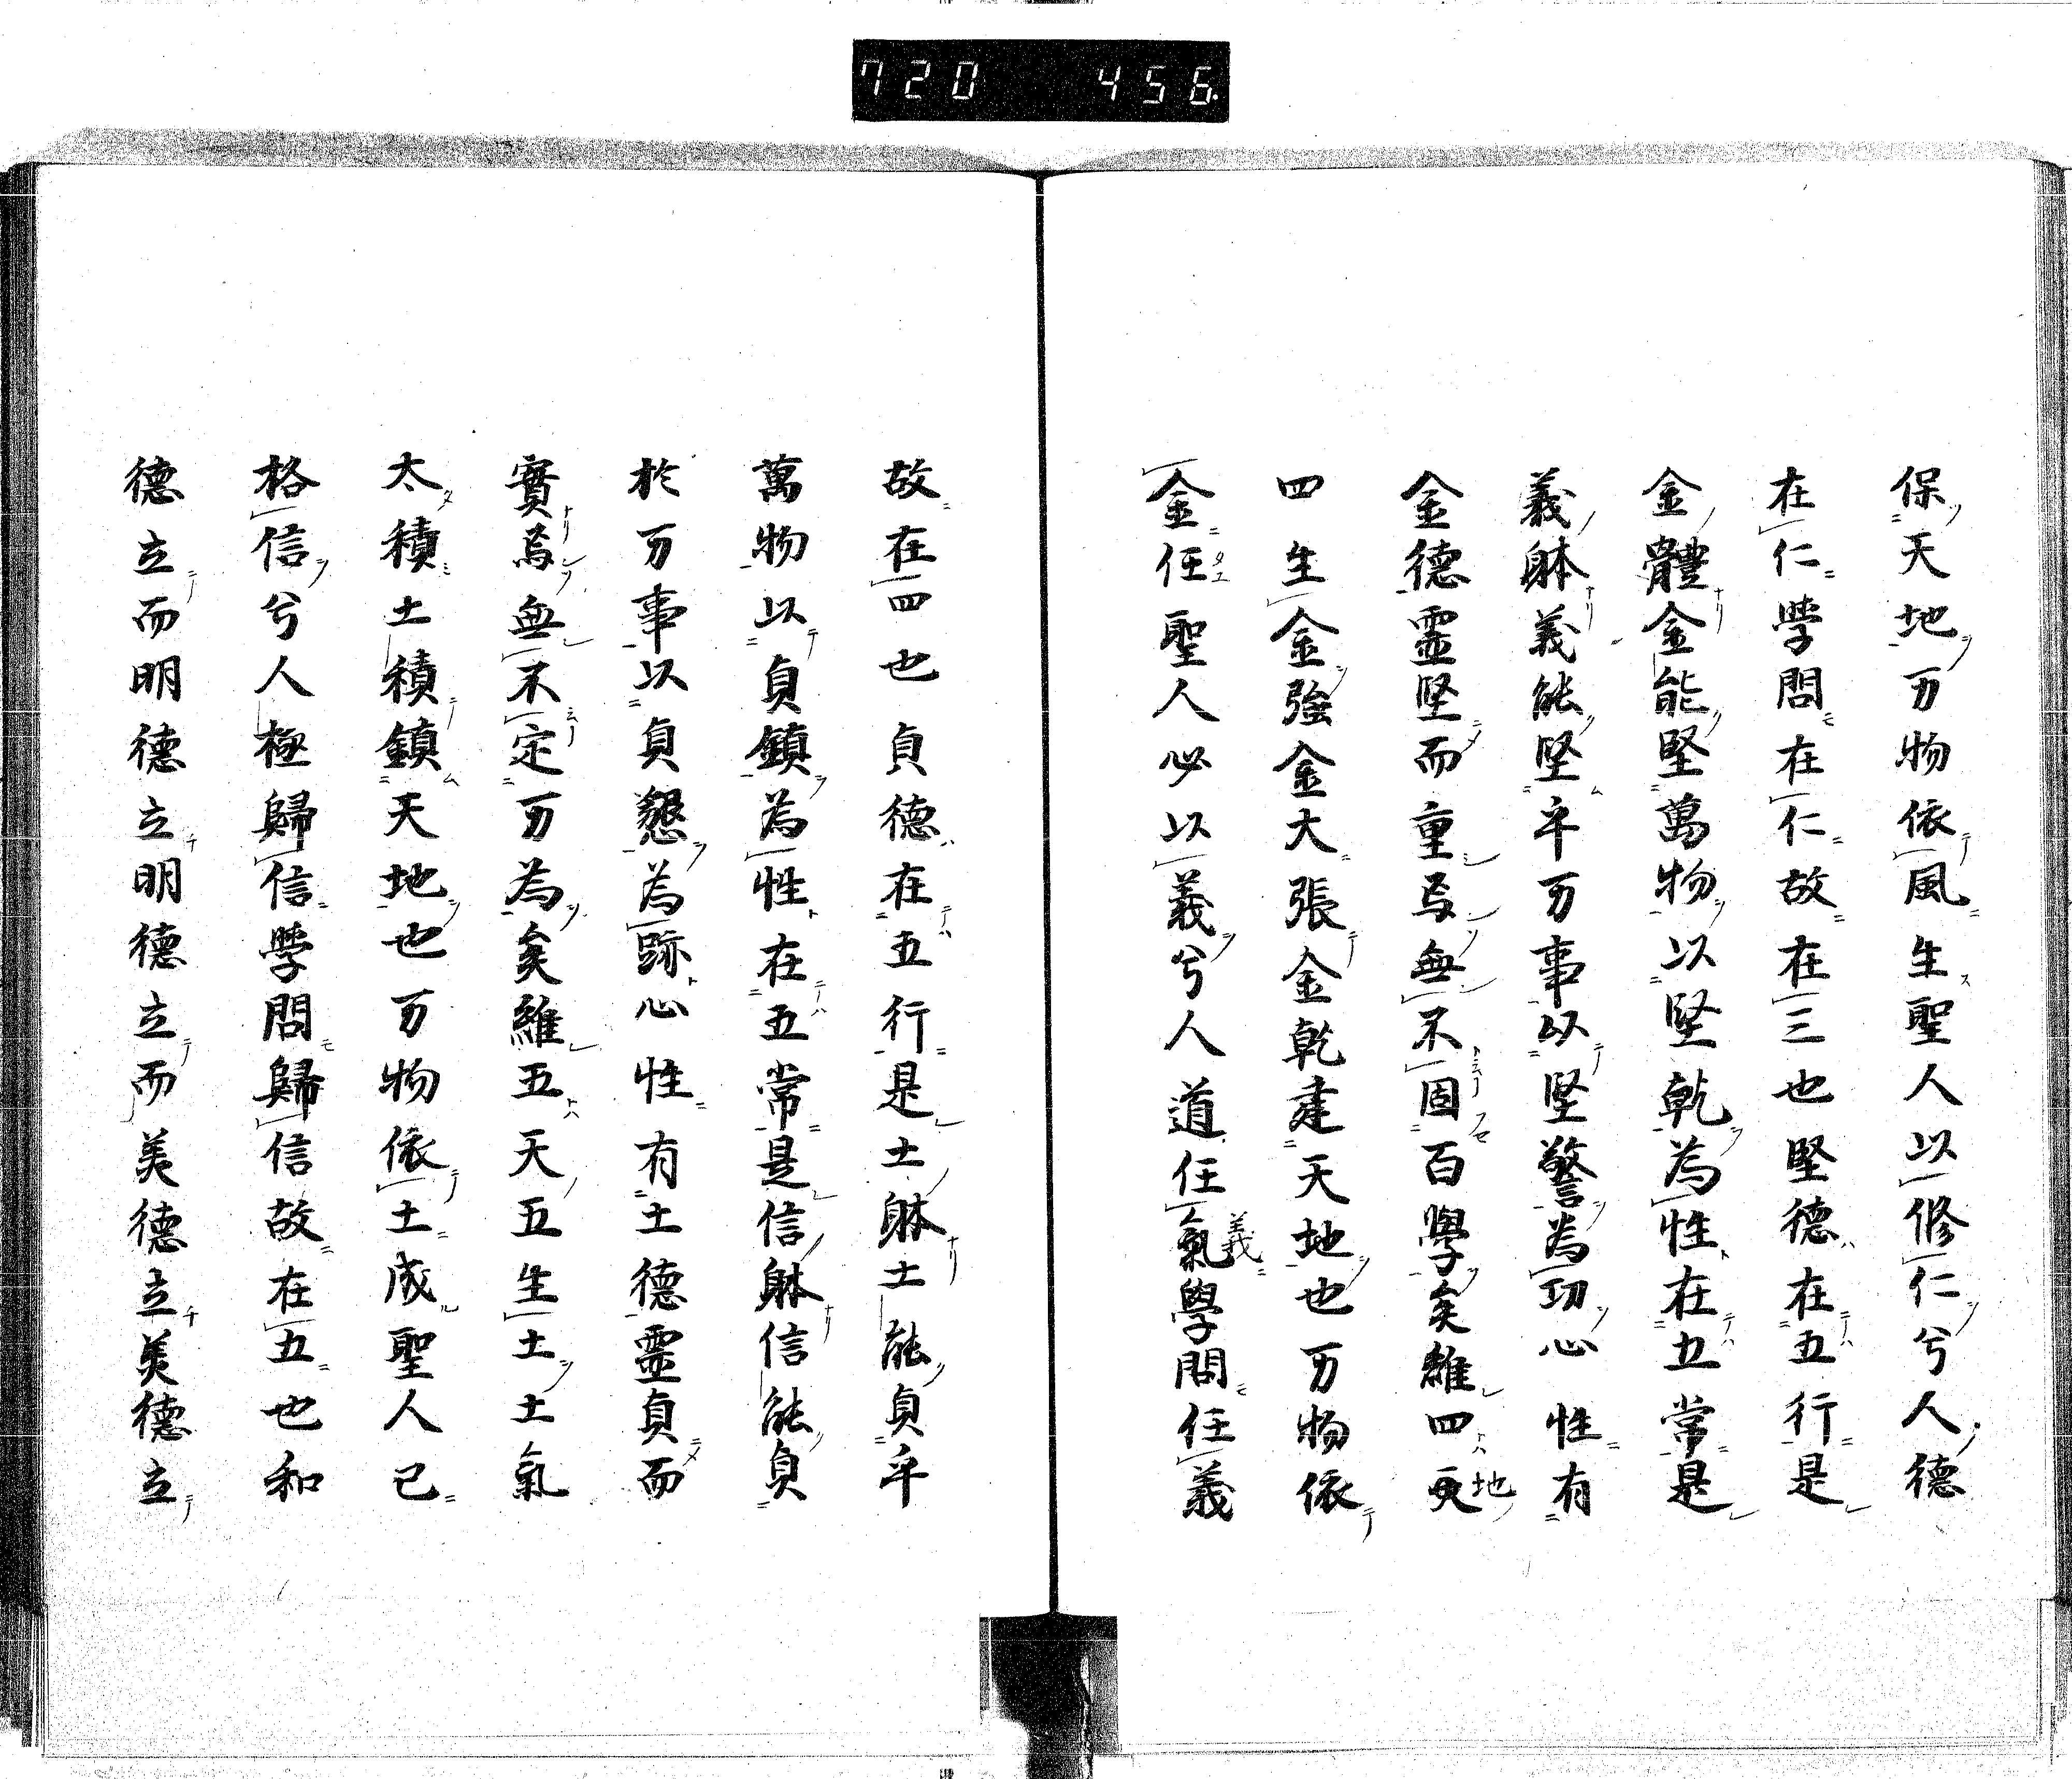 720 456
保天地万物依風生聖人以修仁兮人德
在仁學問在仁故在三也堅德在五行是
金體金能堅萬物以堅乾為性在五常是
義躰義能堅乎万事以堅警為功心性有
金德靈堅而重焉無不固百學矣維四更地
四生金強金大張金乾建天地也万物依
金任聖人必以義兮人道任氣義學問任義
故在四也貞德在五行是土躰土能貞乎
萬物以貞鎮為性在五常是信躰信能貞
於万事以貞懇為跡心性有土德靈貞而
實焉無不定万為矣維五天五生土土氣
太積土積鎮天地也万物依土成聖人已
格信兮人極歸信學問歸信故在五也和
德立而明德立明德立而美德立美德立